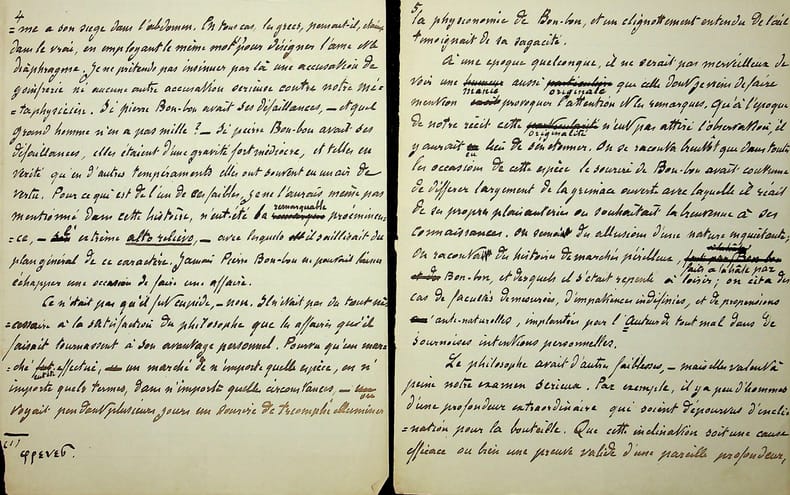 4
=me a son siège dans l'abdomen. En tous cas, les grecs, pensait-il, étaient
dans le vrai, en employant le même mot (1) pour désigner l'âme et le
diaphragme. Je ne prétends pas insinuer par là une accusation de
goinfrerie ni aucune autre accusation serieuse contre notre mé-
=taphysicien. Si pierre Bon-bon avait ses défaillances, – et quel
grand homme n'en a pas mille ? – Si pierre Bon-bon avait ses
défaillances, elles étaient d'une gravité fort médiocre, et telles en
verité qu'en d'autres tempéraments elles ont souvent eu un air de
vertu. Pour ce qui est de l'un de ces faibles, je ne l'aurais même pas
mentionné dans cette histoire, n'eut été la remarquable proeminen=
=ce, – l'extrême alto relievo, – avec lequel il saillissait du
plan général de ce caractère. Jamais Pierre Bon-bon ne pouvait laisser
échapper une occasion de faire une affaire.
Ce n'était pas qu'il fut cupide, – non. Il n'était pas du tout né=
=cessaire à la satisfaction du philosophe que les affaires qu'il
faisait tournassent à son avantage personnel. Pourvu qu'un mar=
ché fût effectué, – un marché de n'importe quelle espèce, en n'
importe quels termes, dans n'importe quelles circonstances, – on
voyait pendant plusieurs jours un sourire de triomphe illuminer
(1)
φρενες.
5
la physionomie de Bon-bon, et un clignottement entendu de l'œil
témoignait de sa sagacité.
A une époque quelconque, il ne serait pas merveilleux de
voir une humeur aussi particulière que celle dont je viens de faire
manie originale
mention provoquer l'attention et les remarques. Qu'à l'époque
de notre récit cette particularité n'eut pas attiré l'observation, il
originalité
y aurait eu lieu de s'en étonner. On se raconta bientôt que dans toutes
les occasions de cette espèce le sourire de Bon-bon avait coutume
de différer largement de la grimace ouverte avec laquelle il riait
de ses propres plaisanteries ou souhaitait la bienvenue à ses
connaissances. On semait des allusions d'une nature inquiétante;
On racontait des histoires de marchés périlleux,
faits à la hâte par
Bon-bon, et desquels il s'était repenti à loisir; on cita des
cas de facultés démesurées, d'impatiences indéfinies, et de propensions
anti-naturelles, implantées par l'Auteur de tout mal dans de
sournoises intentions personnelles.
Le philosophe avait d'autres faiblesses, – mais elles valent à
peine notre examen serieux. Par exemple, il y a peu d'hommes
d'une profondeur extraordinaire qui soient dépourvus d'incli=
=nation pour la bouteille. Que cette inclination soit une cause
efficace ou bien une preuve valide d'une pareille profondeur,